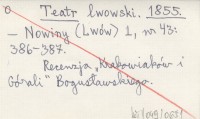 Teatr lwowski. 1855.
— Nowiny (Lwów) 1, nr 43:
386-387.
Recenzja „Krakowiaków i
Górali” Bogusławskiego.